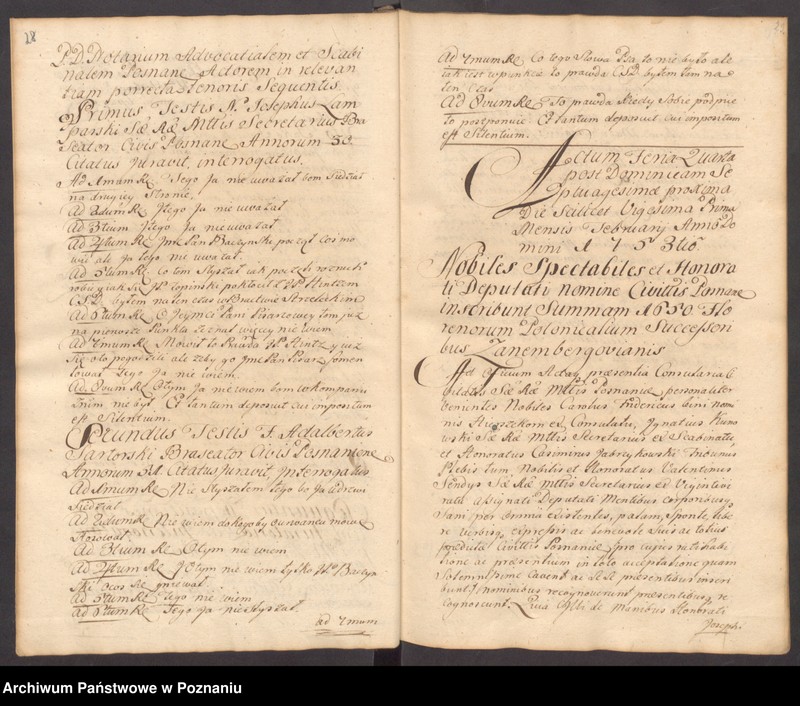 28
P. D. Notarium Advocatialem et Scabi
nalem Posnane Actorem in relevan
tiam porrecta tenoris Sequentis.
Primus Testis N. Josephus Lam
parski Sæ Ræ Mttis Secretarius Bra
seator Civis Posnane Annorum 33.
Citatus Juravit, interrogatus.
Ad Amam Re. Tego Ja nie uważał bom siedział
na drugiey Stronie.
Ad 2dum Re Jtego Ja nie uważał.
Ad 3tium Jtego Ja nie uważał.
Ad 4tum Re Jmć Pan Baczynski począł coś mo
wić ale Ja tego nie uważał.
Ad 5tum Re Co tem słyszał jak poczęli
P. Topinski pokłocił z P. Hintzem
byłem na ten czas w Bractwie Strzeleckim
Ad 6tum Re O Jeymci Pani Pisarzowey tom już
na pierwsze punkta zeznał więcey nie wiem
Ad 7mum Re Mowił to Prawda P. Hintz y już
się oto pogodzili ale żeby go Jmć Pan Pisarz
tego Ja nie wiem.
Ad 8vum Re Otym Ja nie wiem bom w kompanij
z nim nie był. Et tantum deposuit cui impositum
est Silentium.
Secundus Testis F. Adalbertus
Sartorski Braseator Civis Posnaniens
Annorum 51. Citatus Juravit, Interrogatus
Ad Amum Re Nie słyszałem tego bo Ja u drzwi
Siedział
Ad 2dum Re Nie wiem do kogo by
Stosował.
Ad 3tium Re Otym nie wiem
Ad 4tum Re JOtym nie wiem tylko P. Baczyn
ski ocoś się gniewał.
Ad 5tum Re Tego nie wiem
Ad 6tum Re Tego Ja nie słyszał.
ad 7mum
Ad 7mum Re Co tego Słowa Psa, to nie było ale
jak iest w punkcie to prawda byłem tam na
ten czas
Ad 8vum Re To prawda kiedy Sobie podpije
to postponuie Et tantum deposuit cui impositum
est Silentium.
Actum Feria Quarta
post Dominicam Se
ptuagesimæ proxima
Die Scilicet Vigesima Prima
Mensis Februarij Anno Do
mini 1753tio
Nobiles Spectabiles et Honora
ti Deputati nomine Civittis Posnane
inscribunt Summam 1650 Flo
renorum Polonicalium Successori
bus Zanembergovianis
Ad Officium Actaq præsentia Consularia Ci
vitatis Sæ Ræ Mttis Posnaniæ, personaliter
venientes Nobiles Carolus Fridericus bini nomi
nis Consulatu, Ignatius
Sæ Ræ Mttis Secretarius ex Scabinatu,
et Honoratus Casimirus Jabrzykowski Tribunus
Plebis tum, Nobilis et Honoratus Valentinus
Sendys Sæ Ræ Mttis Secretarius ex Vigintivi
ratu assignati Deputati Mentibus corporibusq
Sani per omnia existentes, palam, Sponte, libe
re verbisq expressis ac benevole Suis ac totius
prædictæ Civittis Posnaniæ, pro cujus ratihabi
tione ac præsentium in toto acceptatione quam
Solemnissime cavent ac Se præsentibus inscri
bunt, nominibus recognoverunt præsentibusq re
cognoscunt. Quia de Manibus Honorati
Josephi
Archiwum Państwowe w Poznaniu